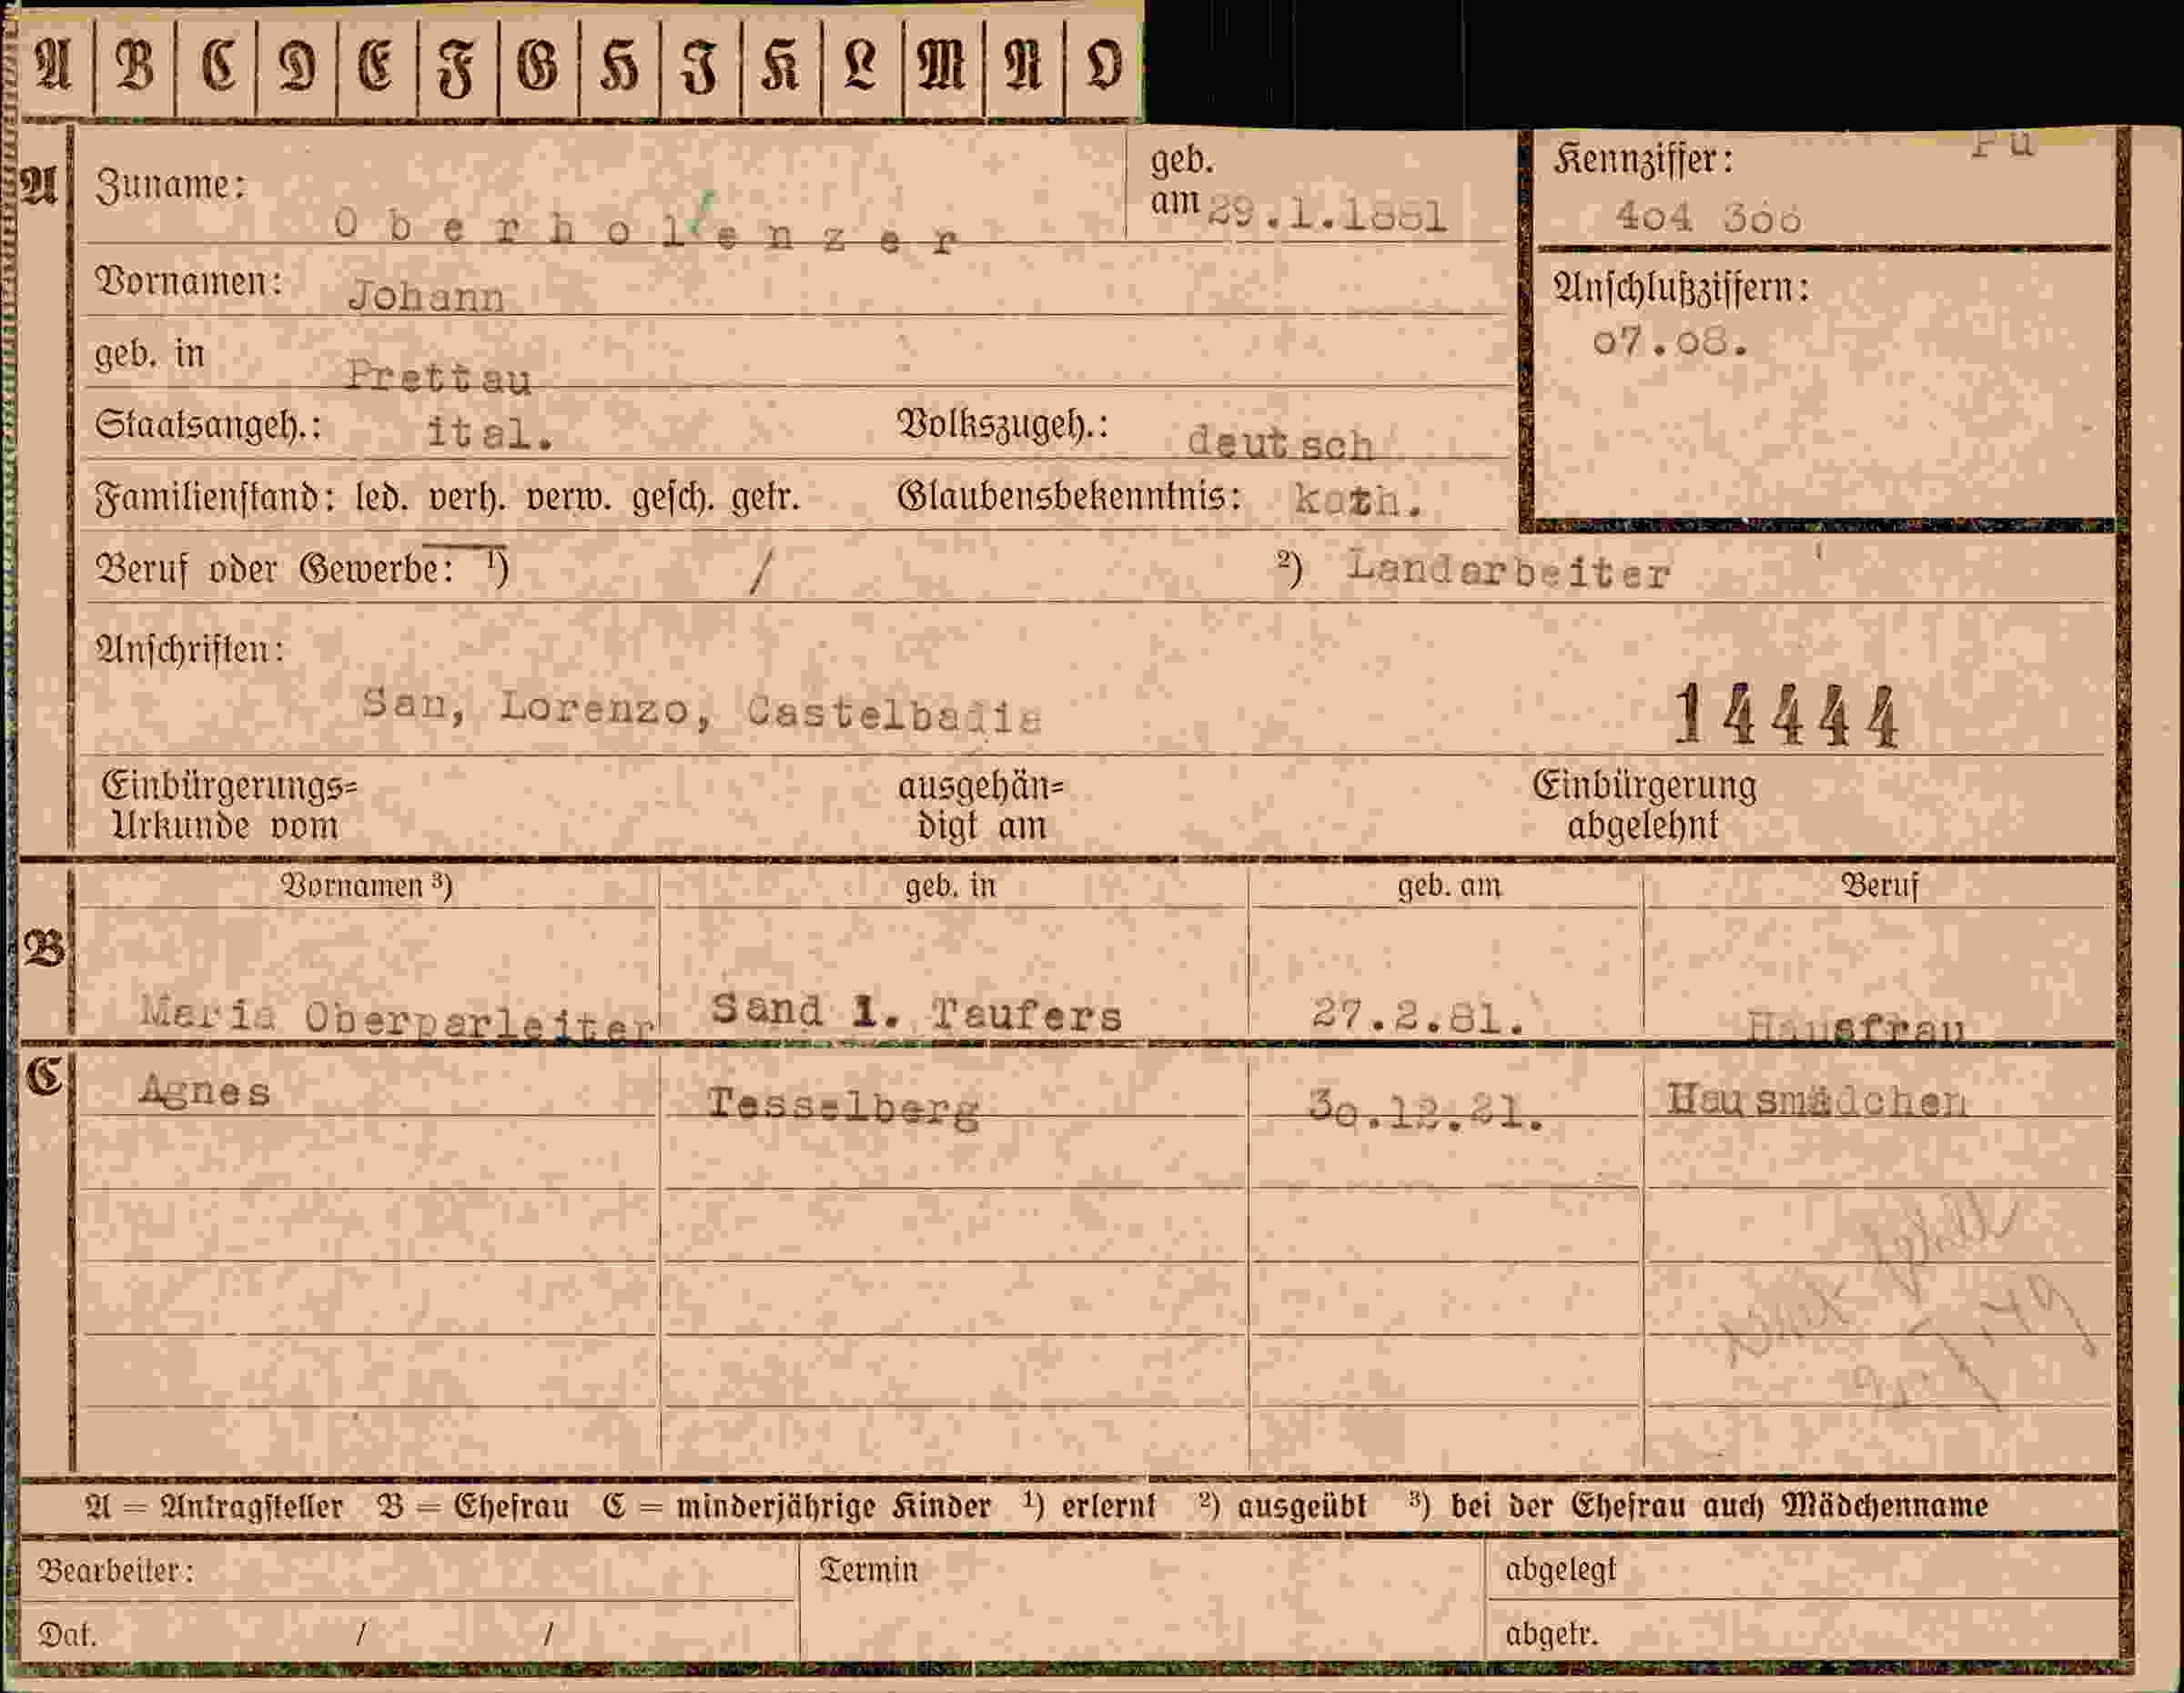 A B C D E F G H I K L M N O
A Zuname: Oberholenzer geb. am 29.1.1881
Kennziffer: Pu
404 366
Vornamen: Johann
Anschlußziffern:
07.08.
geb. in Prettau
Staatsangeh.: ital. Volkszugeh.: deutsch
Familienstand: led. verh. verw. gesch. getr. Glaubensbekenntnis: kath.
Beruf oder Gewerbe: 1) / 2) Landarbeiter
Anschriften:
San, Lorenzo, Castelbadia 14444
Einbürgerungs= ausgehän= Einbürgerung
Urkunde vom digt am abgelehnt
Vornamen 3) geb. in geb. am Beruf
B Maria Oberparleiter Sand i. Taufers 27.2.81. Hausfrau
C Agnes Tesselberg 30.12.21. Hausmädchen
A = Antragsteller B = Ehefrau C = minderjährige Kinder 1) erlernt 2) ausgeübt 3) bei der Ehefrau auch Mädchenname
Bearbeiter: Termin abgelegt
Dat. / / abgetr.